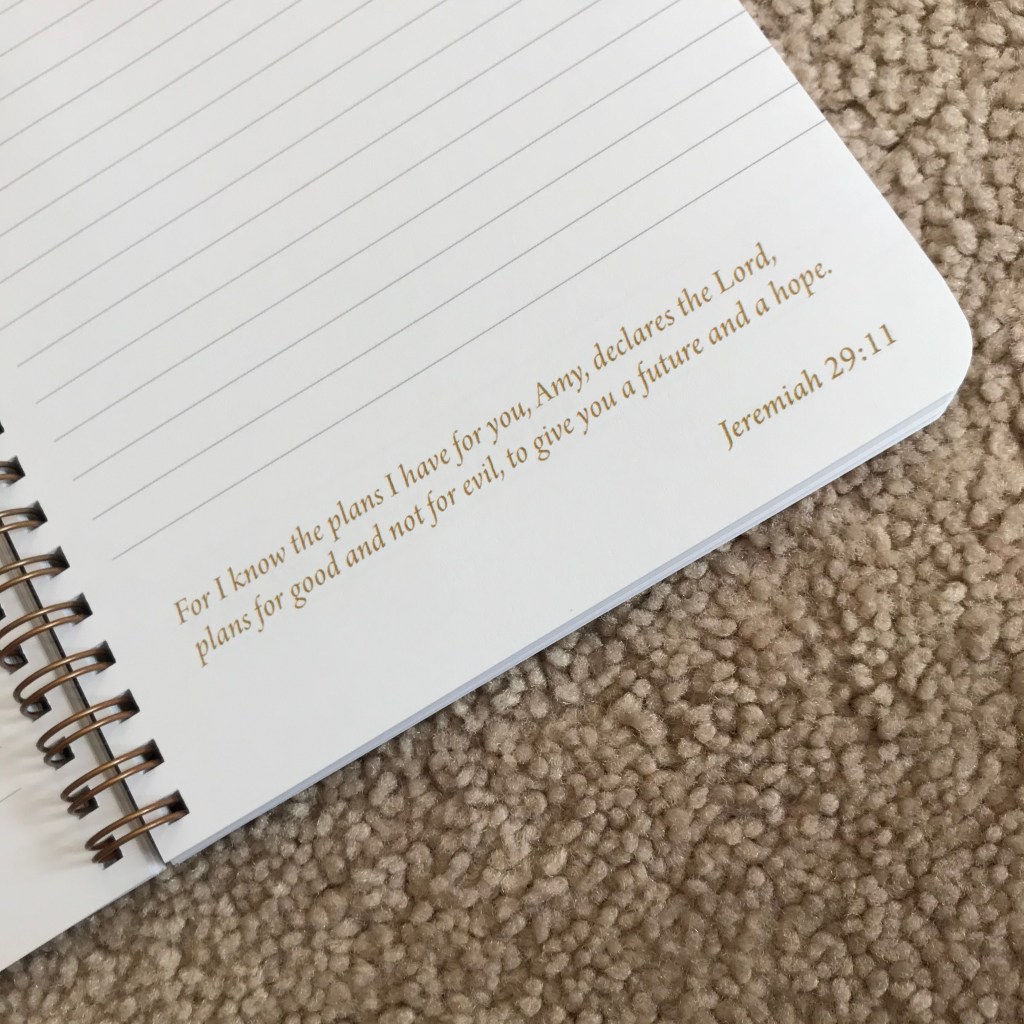 For I know the plans I have for you, Amy, declares the Lord,
plans for good and not for evil, to give you a future and a hope.
Jeremiah 29:11